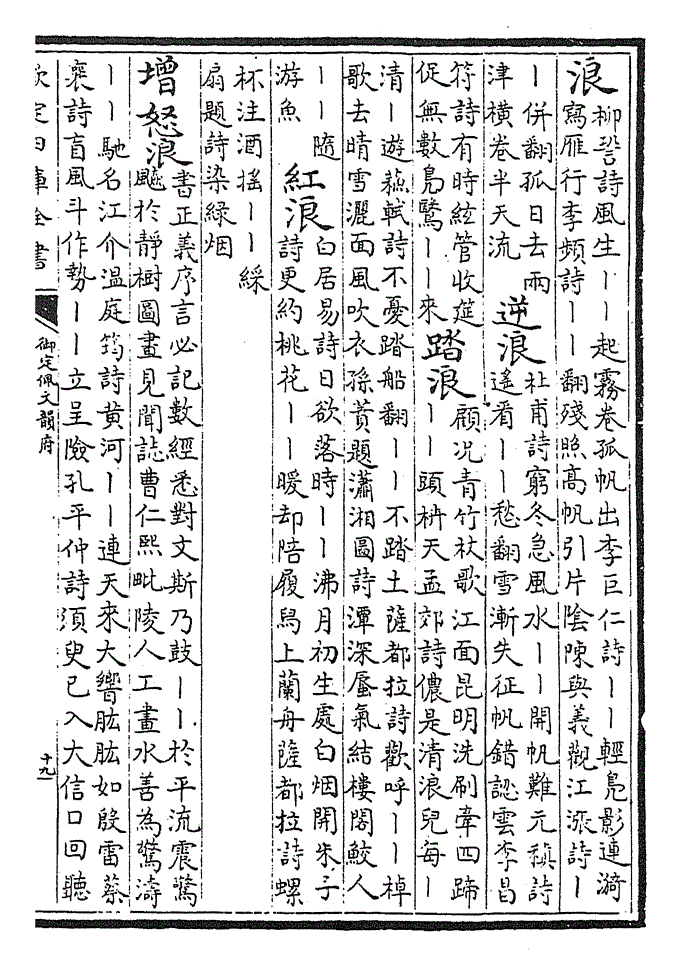 浪
柳𧦬詩風生丨丨起霧卷孤帆出李巨仁詩丨丨輕鳧影連漪
寫雁行李頻詩丨丨翻殘照高帆引片陰陳與義觀江漲詩丨
丨併翻孤日去兩
津橫卷半天流
逆浪
杜甫詩窮冬急風水丨丨開帆難元稹詩
遙看丨丨愁翻雪漸失征帆錯認雲李昌
符詩有時絃管收筵
促無數鳧鷖丨丨來
踏浪
顧況青竹杖歌江面昆明洗刷牽四蹄
丨丨頭枿天孟郊詩儂是清浪兒每丨
清丨遊蘇軾詩不憂踏船翻丨丨不踏土薩都拉詩歡呼丨丨棹
歌去晴雪灑面風吹衣孫蕡題瀟湘圖詩潭深蜃氣結樓閣鮫人
丨丨隨
游魚
紅浪
白居易詩日欲落時丨丨沸月初生處白烟開朱子
詩更約桃花丨丨暖却陪履舄上蘭舟薩都拉詩螺
杯注酒搖丨丨綵
扇題詩染綠烟
增怒浪
書正義序言必記數經悉對文斯乃鼓丨丨於平流震驚
飈於靜樹圖畫見聞誌曹仁熙毗陵人工畫水善為驚濤
丨丨馳名江介温庭筠詩黄河丨丨連天來大響肱肱如殷雷蔡
襄詩盲風斗作勢丨丨立呈險孔平仲詩須臾已入大信口回聽
欽定四庫全書
御定佩文韻府
十九